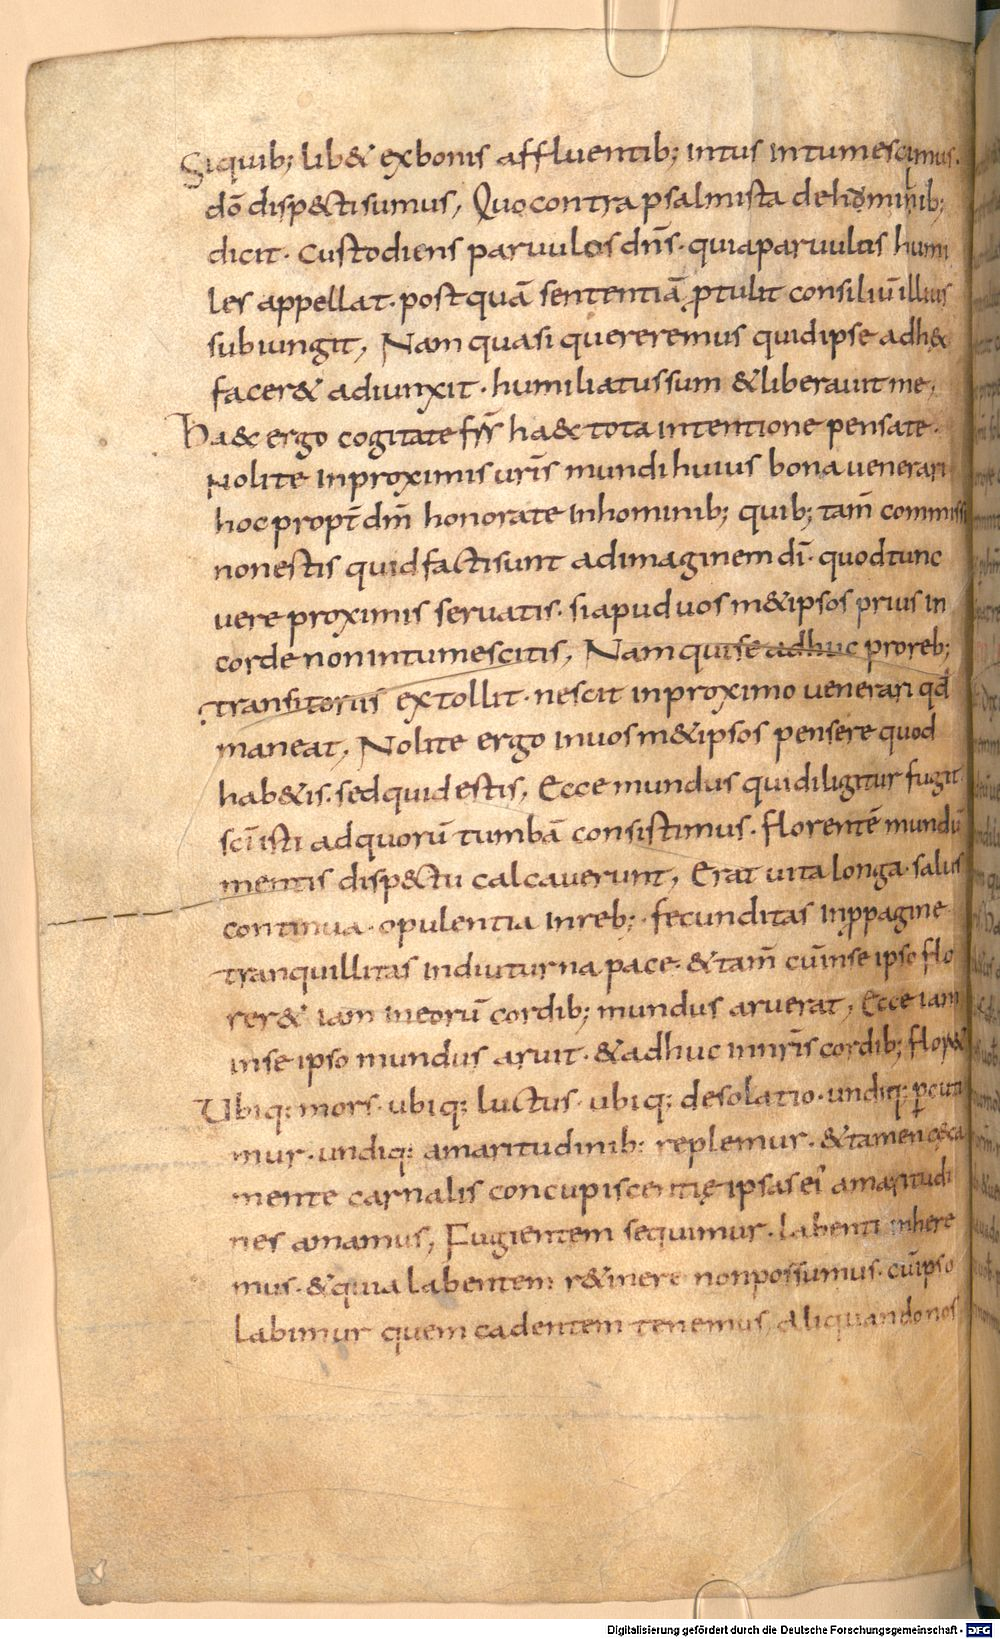 Siquib; lib& exbonis affluentib; intus intumescimus.
dō disp&tisumus, Quocontra psalmista dehominib;
dicit. Custodiens paruulos dn̄s. quiaparuulus humi
les appellat. postquā sententiā ꝓtulit consiliū illius
subiungit, Nam quasi quereremus quidipse adh&
facer& adiunxit. humiliatussum &liberauit me,
Ha&c ergo cogitate fr̄r̄ ha&c tota intentione pensate.
Nolite inproximis ur̄is mundi huius bona uenerari
hoc propt̄ dm̄ honorate inhominib; quib; tam̄ commissi
nonestis quidfactisunt adimaginem dī. quodtunc
uere proximis seruatis. siapud uos m&ipsos prius in
corde nonintumescitis, Nam quise adhuc proreb;
transitoriis extollit. nescit inproximo uenerari qd̄
maneat, Nolite ergo inuosm&ipsos pensere quod
hab&is. sedquidestis, Ecce mundus quidiligitur fugit.
sc̄i isti adquorū tumbā consistimus. florentē mundū
mentis disp&tu calcauerunt, Erat uita longa. salus
continua. opulentia inreb;. fecunditas inꝓpagine
tranquillitas indiuturna pace. &tam̄ cū inse ipso flo
rer& iam ineorū cordib; mundus aruerat, Ecce iam
inse ipso mundus aruit. &adhuc innr̄is cordib; flor&
Ubiq; mors. ubiq; luctus. ubiq; desolatio. undiq; ꝑcuti
mur. undiq; amaritudinib; replemur. &tamen c&ca
mente carnalis concupiscentię ipsas ei' amaritudi
nes amamus, Fugientem sequimur. labenti inhere
mus. &quia labentem r&inere nonpossumus. cū ipso
labimur quem cadentem tenemus, Aliquandonos
Digitalisierung gefördert durch die Deutsche Forschungsgemeinschaft - DFG